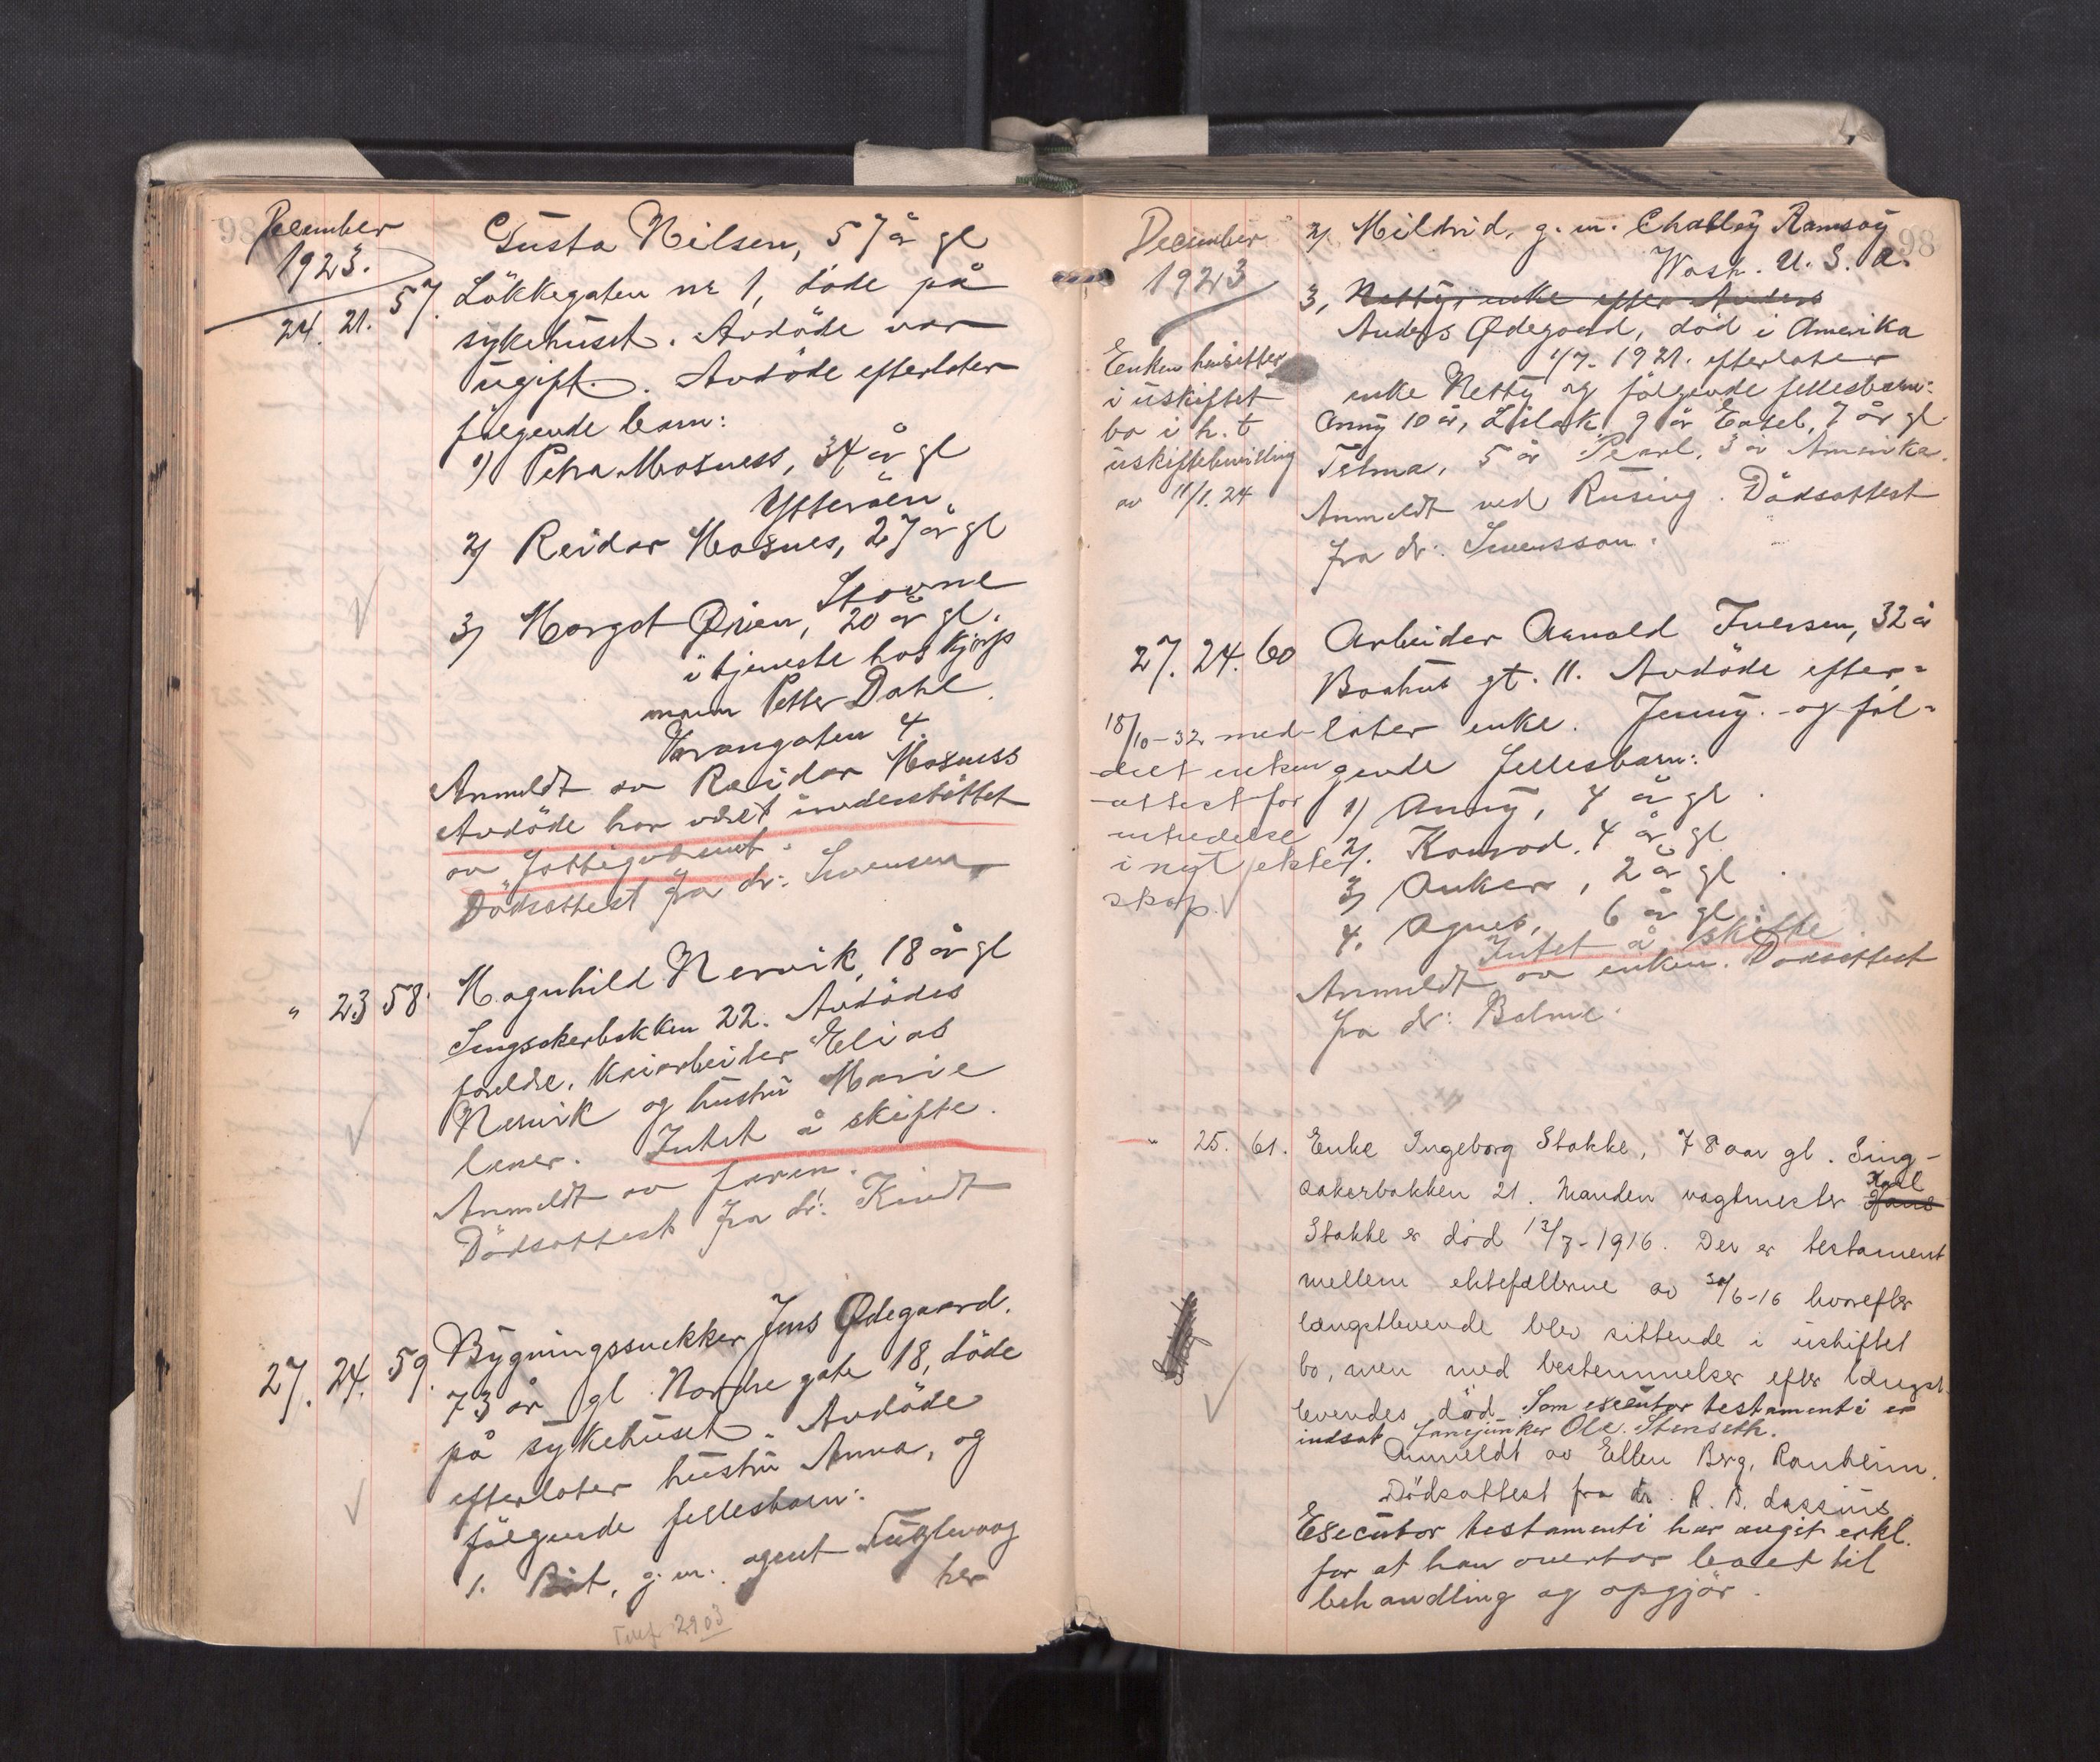 December
1923.
24. 21. 57.
Gusta Nilsen, 57 år gl
Lökkegaten nr 1, döde på
sykehuset. Avdöde var
ugift. Avdöde efterlater
fölgende barn:
1) Petra Mosness, 34 år gl
Ytteröen.
2) Reidar Mosnes, 27 år gl
3) Margot Øien, 20 år gl.
i tjeneste hos kjöp
mann Petter Dahl
4.
Anmeldt av Reidar Mosness
Avdöde har været understöttet
av Fattigvesenet.
Dödsattest fra dr: Svensen
" 23 58.
Magnhild Nervik, 18 år gl
Singsakerbakken 22. Avdödes
foreldre, kaiarbeider Elias
Nervik og hustru Marie
lever. Intet å skifte.
Anmeldt av faren.
Dödsattest fra dr: Kindt
27. 24. 59.
Bygningssnekker Jens Ødegaard.
73 år gl Nordre gate 18, döde
på sykehuset. Avdöde
efterlater hustru Anna, og
fölgende fellesbarn:
1. g. m. agent Fuglevaag
her
Telef. 2903
98
December
1923
Enken hensitter
i uskiftet
bo i h. t
uskiftebevilling
av 11/1. 24
2) Mildrid, g. m. Ramsøy
Wash. U. S. A.
3, Netty, enke efter Anders
Anders Ødegaard, död i Amerika
1/7- 1921. efterlater
enke Netty og fölgende fellesbarn:
Anny 10 år, 9 år 7 år gl.
Telma, 5 år Pearl, 3 år Amerika.
Anmeldt ved Rusing. Dödsattest
fra dr: Svensson.
27. 24. 60
Arbeider Arnold Iversen, 32 år
gt. 11. Avdöde efter=
later enke. Jenny. og föl=
gende fellesbarn:
1) Anny, 7 år gl.
2. Konrad, 4 år gl
3) Anker, 2 år gl.
4. Agnes, 6 år gl.
Intet å skifte
Anmeldt av enken. Dödsattest
fra dr: Balme.
18/10-32 med-
delt enken
attest for
intredelse
i nyt ekte
skap.
" 25. 61.
Enke Ingeborg Stokke, 78 aar gl. Sing-
sakerbakken 21. Manden vagtmester Hans Karl
Stokke er död 12/7-1916. Der er testament
mellem ektefællerne av 30/6-16 hvorefter
længstlevende blev sittende i uskiftet
bo, men med bestemmelser efter længst-
levendes död. Som executor testamenti er
indsat Ole Stenseth.
Anmeldt av Ellen Berg, Ranheim.
Dödsattest fra dr. R. B. Lassius
Executor testamenti har avgit erkl.
for at han overtar boet til
behandling og opgjör.